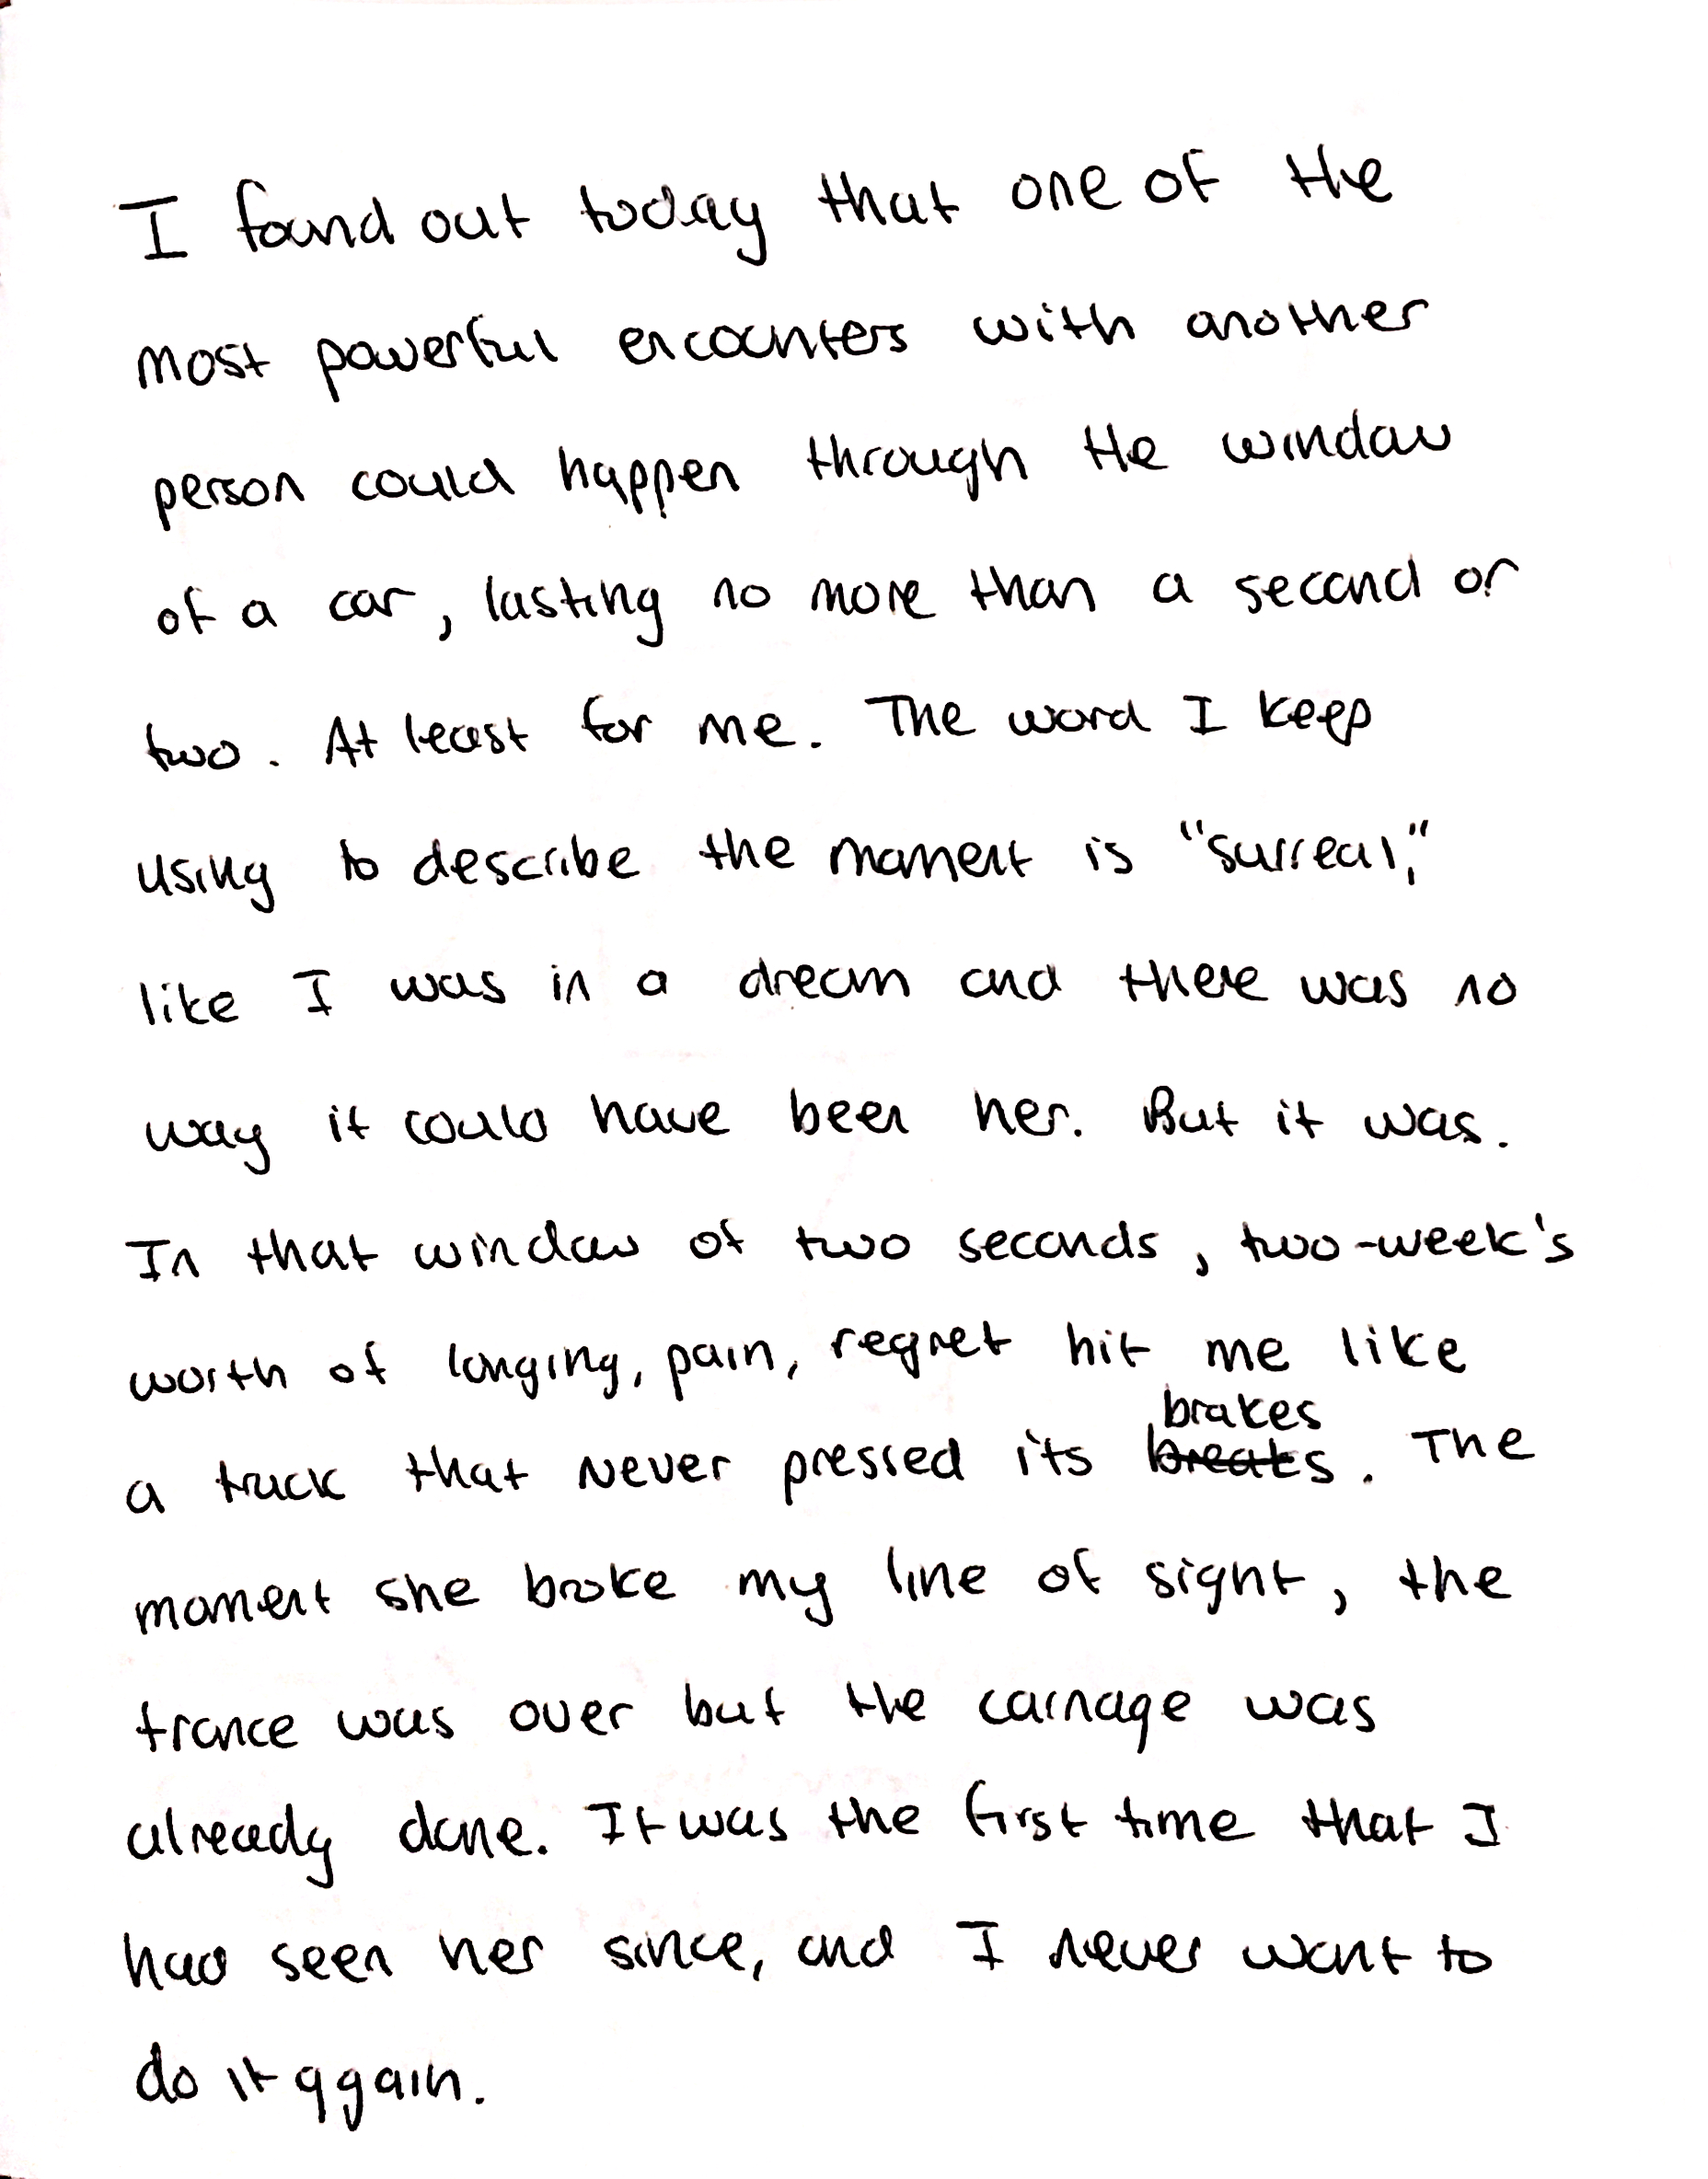 I found out today that one of the
most powerful encounters with another
person could happen through the window
of a car, lasting no more than a second or
two. At least for me. The word I keep
using to describe the moment is "surreal,"
like I was in a dream and there was no
way it could have been her. But it was.
In that window of two seconds, two-week's
worth of longing, pain, regret hit me like
brakes
a truck that never pressed its breaks. The
moment she broke my line of sight, the
trance was over but the carnage was
already done. It was the first time that I
had seen her since, and I never want to
do it again.